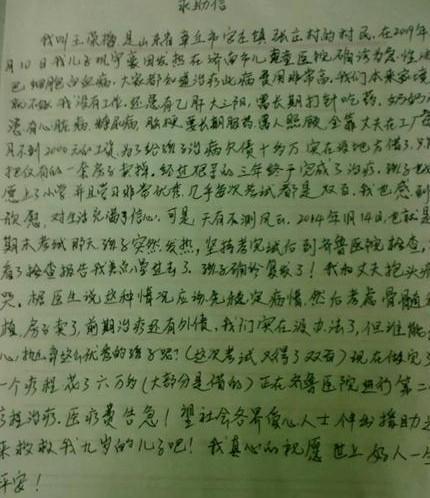 求助信
我叫王荣梅是山东省章丘市宁家埠镇张庄村的村民,在2009年
月10日我儿子 因发热在济南市儿童医院确诊为急性淋
巴细胞白血病.大家都知道治疗此病费用非常高.我们本来家境
就不好,我没有工作,还患有乙肝大三阳,需长期打针吃药,奶奶
患有心脏病.糖尿病,脑梗,要长期服药需人照顾,全靠丈夫在工厂每
月不到2000元的工资,为了给孩子治病欠债十多万实在没地去借了,只
把仅有的一套房子卖掉.经过艰辛的三年终于完成了治疗.孩子也
愿上了小学并且学习非常优秀.几乎每次考试都是双百,我也感到
欣慰,对生活充满了信心.可是,天有不测风云.2014年1月14日,也就是
期末考试那天孩子突然发热,坚持考完试后到齐鲁医院检查,
看了检查报告我差点儿晕过去了.孩子确诊复发了!我和丈夫抱头痛
哭.据医生说这种情况应该先稳定病情,然后考虑骨髓移
植,房子卖了,前期治疗还有外债,我们实在没办法了,但谁能
心,抛弃这么优秀的孩子呢?(这次考试又得了双百)现在做完了
一个疗程花了六万多(大部分是借的)正在齐鲁医院进行第二个
疗程治疗.医疗费告急!望社会各界爱心人士伸出援助之
来救救我九岁的儿子吧!我真心的祝愿世上好人一生
平安!